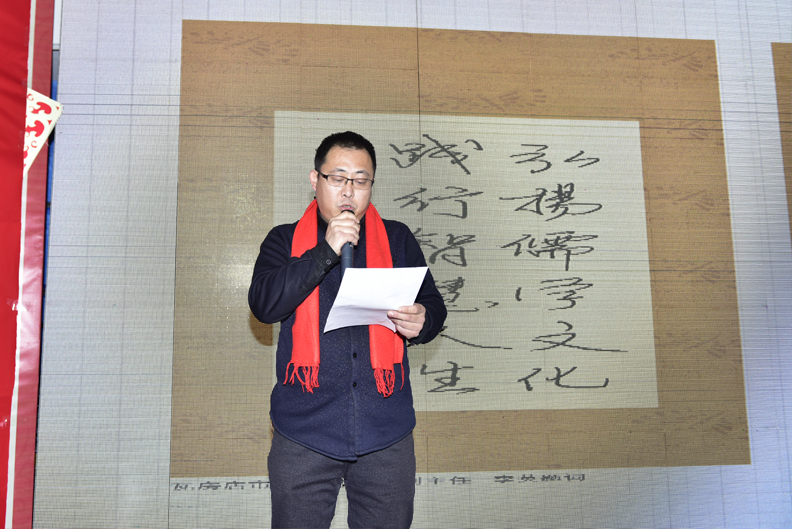 弘揚儒学文化
践行智慧人生
瓦房店市 副主任 题词